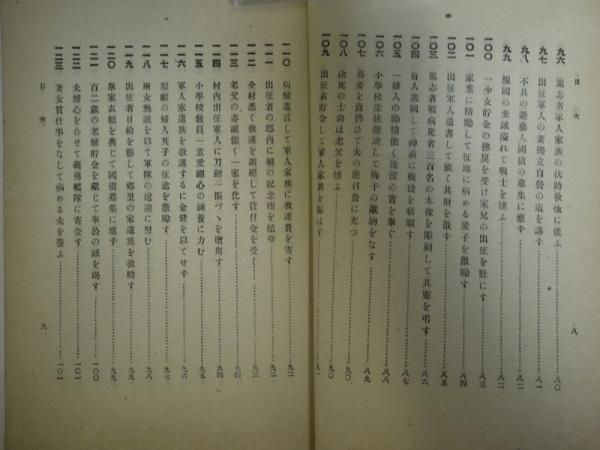 目次
九六 篤志者軍人家族の扶助教恤に従ふ……八〇
九七 出征軍人の妻獨立自營の策を講す……八一
九八 不具の遊藝人國債の募集に應す……八二
九九 報國の至誠溢れて戰士を懐ふ……八二
一〇〇 一少女貯金の拂戻を受け家兄の出征を壯にす……八三
一〇一 家業に精勵して征地に病める愛子を激勵す……八四
一〇二 出征軍人遺書して能く其財を散す……八五
一〇三 篤志者戰病死者三百名の木像を彫刻して其靈を弔す……八六
一〇四 盲人共同して神前に戰捷を祈願す……八七
一〇五 一婦人の勤精能く後援の實を擧ぐ……八八
一〇六 小學校生徒遊說して梅干の獻納をなす……八八
一〇七 其妻を賣拂ひて夫の應召費に充つ……八九
一〇八 決死の士尚ほ老父を懐ふ……九〇
一〇九 出征者貯金して軍人家族を賑はす……九一
八
一一〇 病婦遺言して軍人家族に救護費を寄す……九二
一一一 出征者の郡內に桐の記念樹を植ゆ……九二
一一二 全村悉く救護を謝絕して貸付金を受く……九三
一一三 老父の赤誠能く一家を化す……九四
一一四 村內出征軍人に刀劍二振づゝを贈與す……九四
一一五 小學校敎員一意愛國心の涵養に力む……九五
一一六 軍人家遺族を救護するに金錢を以てせす……九六
一一七 頴齡の婦人其子の征途を激勵す……九七
一一八 兩女熱誠を以て軍隊の送迎に努む……九八
一一九 出征者日給を節して鄕里の家遺族を救助す……九九
一二〇 擧家衣類を典じて國債募集に應す……九九
一二一 百二歲の老婦貯金を獻じて奉公の誠を竭す……一〇〇
一二二 夫婦心を合せて義勇艦隊に寄金す……一〇一
一二三 妻女賃仕事をなして病める夫を養ふ……一〇一
目次
九